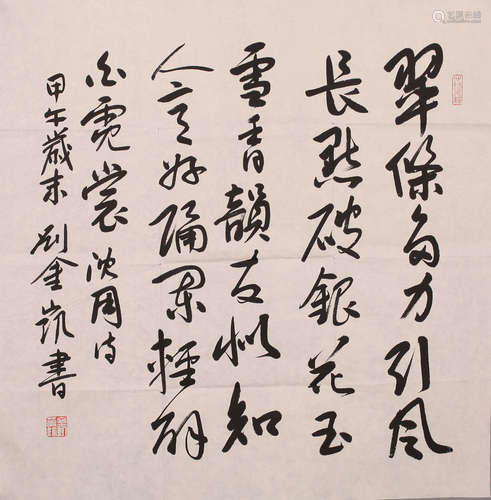 翠條多力引風
長點破銀花玉
雪香韻友似知
人意好隔闌輕解
白霓裳 沈周詩
甲午歲末 劉金凱書